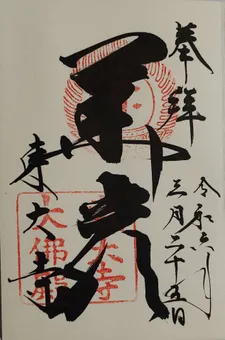 奉拜
令和六年
三月二十五日
華嚴
東大寺
東大寺
大佛殿